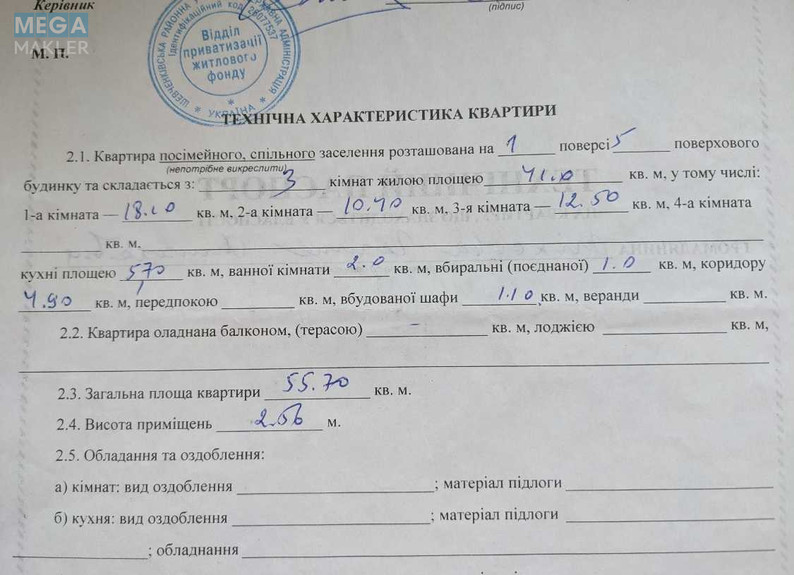 Керівник
(підпис)
MEGA
MAKLER
М. П.
ШЕВЧЕНКІВСЬКА РАЙОННА ДЕРЖАВНА АДМІНІСТРАЦІЯ * УКРАЇНА *
Ідентифікаційний код 26077537
Відділ
приватизації
житлового
фонду
ТЕХНІЧНА ХАРАКТЕРИСТИКА КВАРТИРИ
2.1. Квартира посімейного, спільного заселення розташована на 1 поверсі 5 поверхового
(непотрібне викреслити)
будинку та складається з: 3 кімнат жилою площею 41.0 кв. м, у тому числі:
1-а кімната — 18.10 кв. м, 2-а кімната — 10.40 кв. м, 3-я кімната — 12.50 кв. м, 4-а кімната
кв. м.
кухні площею 570 кв. м, ванної кімнати 2.0 кв. м, вбиральні (поєднаної) 1.0 кв. м, коридору
4.90 кв. м, передпокою кв. м, вбудованої шафи 1.10 кв. м, веранди кв. м.
2.2. Квартира оладнана балконом, (терасою) – кв. м, лоджією кв. м,
2.3. Загальна площа квартири 55.70 кв. м.
2.4. Висота приміщень 2.56 м.
2.5. Обладання та оздоблення:
а) кімнат: вид оздоблення ; матеріал підлоги
б) кухня: вид оздоблення ; матеріал підлоги
; обладнання